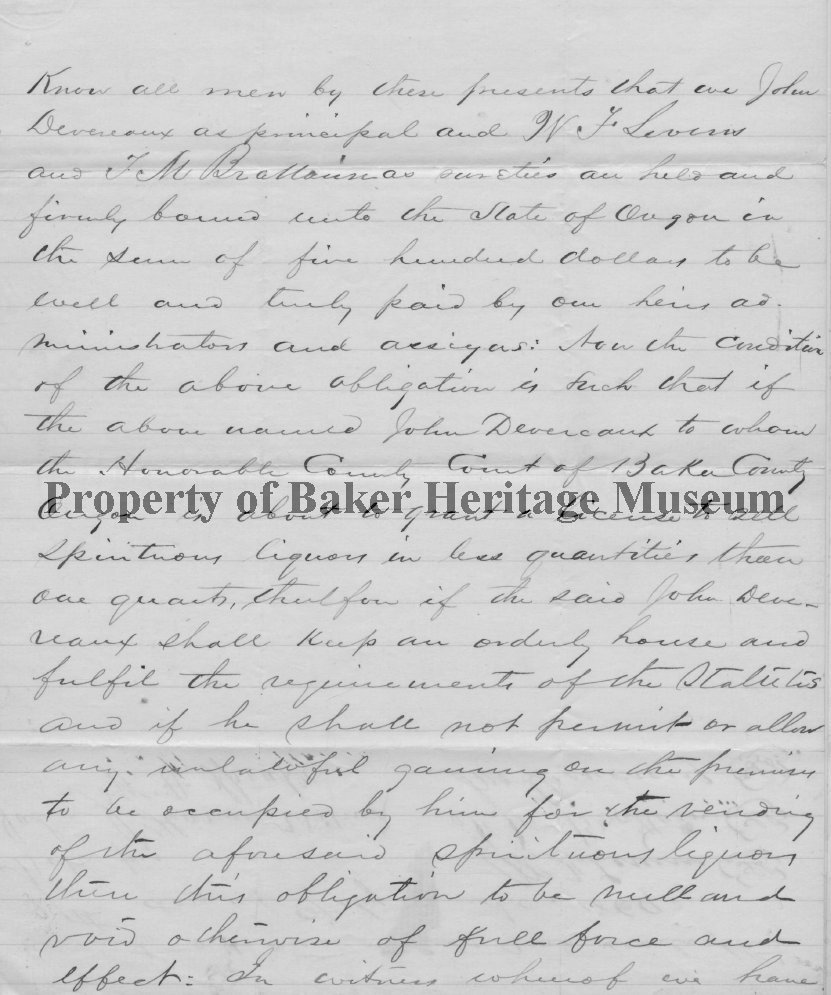 Know all men by these presents that we John
Devereaux as principal and W F Levens
and T M Brattain as sureties are held and
firmly bound unto the State of Oregon in
the sum of five hundred dollars to be
well and truly paid by our heirs ad-
ministrators and assigns: Now the condition
of the above obligation is such that if
the above named John Devereaux to whom
the Honorable County Court of Baker County
Property of Baker Heritage Museum
Oregon is about to grant a license to sell
spirituous liquors in less quantities than
one quart, therefore if the said John Deve-
reaux shall keep an orderly house and
fulfil the requirements of the Statutes
and if he shall not permit or allow
any unlawful gaming on the premises
to be occupied by him for the vending
of the aforesaid spirituous liquors
then this obligation to be null and
void otherwise of full force and
effect: In witness whereof we have